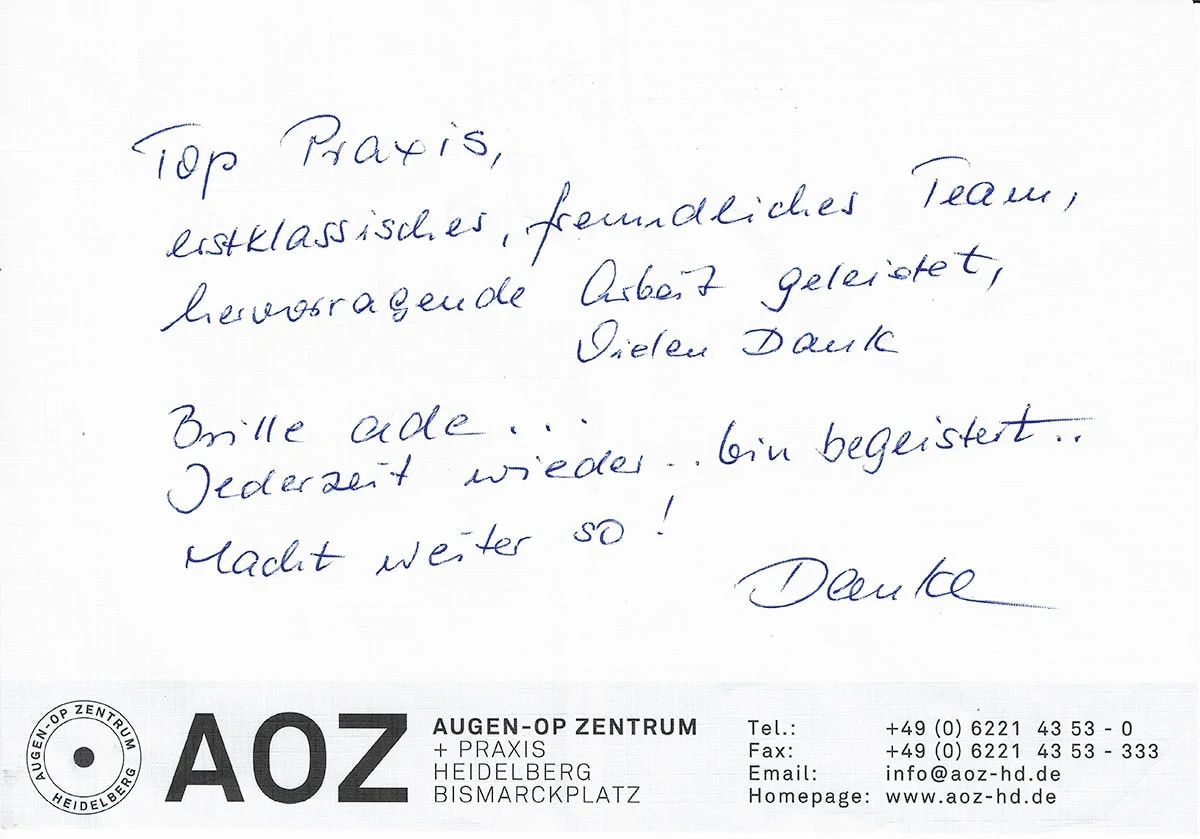 Top Praxis,
erstklassisches, freundliches Team,
hervorragende Arbeit geleistet,
Vielen Dank
Brille ade...
Jederzeit wieder... bin begeistert..
Macht weiter so!
Danke
AUGEN-OP ZENTRUM HEIDELBERG
AOZ
AUGEN-OP ZENTRUM
+ PRAXIS
HEIDELBERG
BISMARCKPLATZ
Tel.: +49 (0) 6221 43 53 - 0
Fax: +49 (0) 6221 43 53 - 333
Email: info@aoz-hd.de
Homepage: www.aoz-hd.de